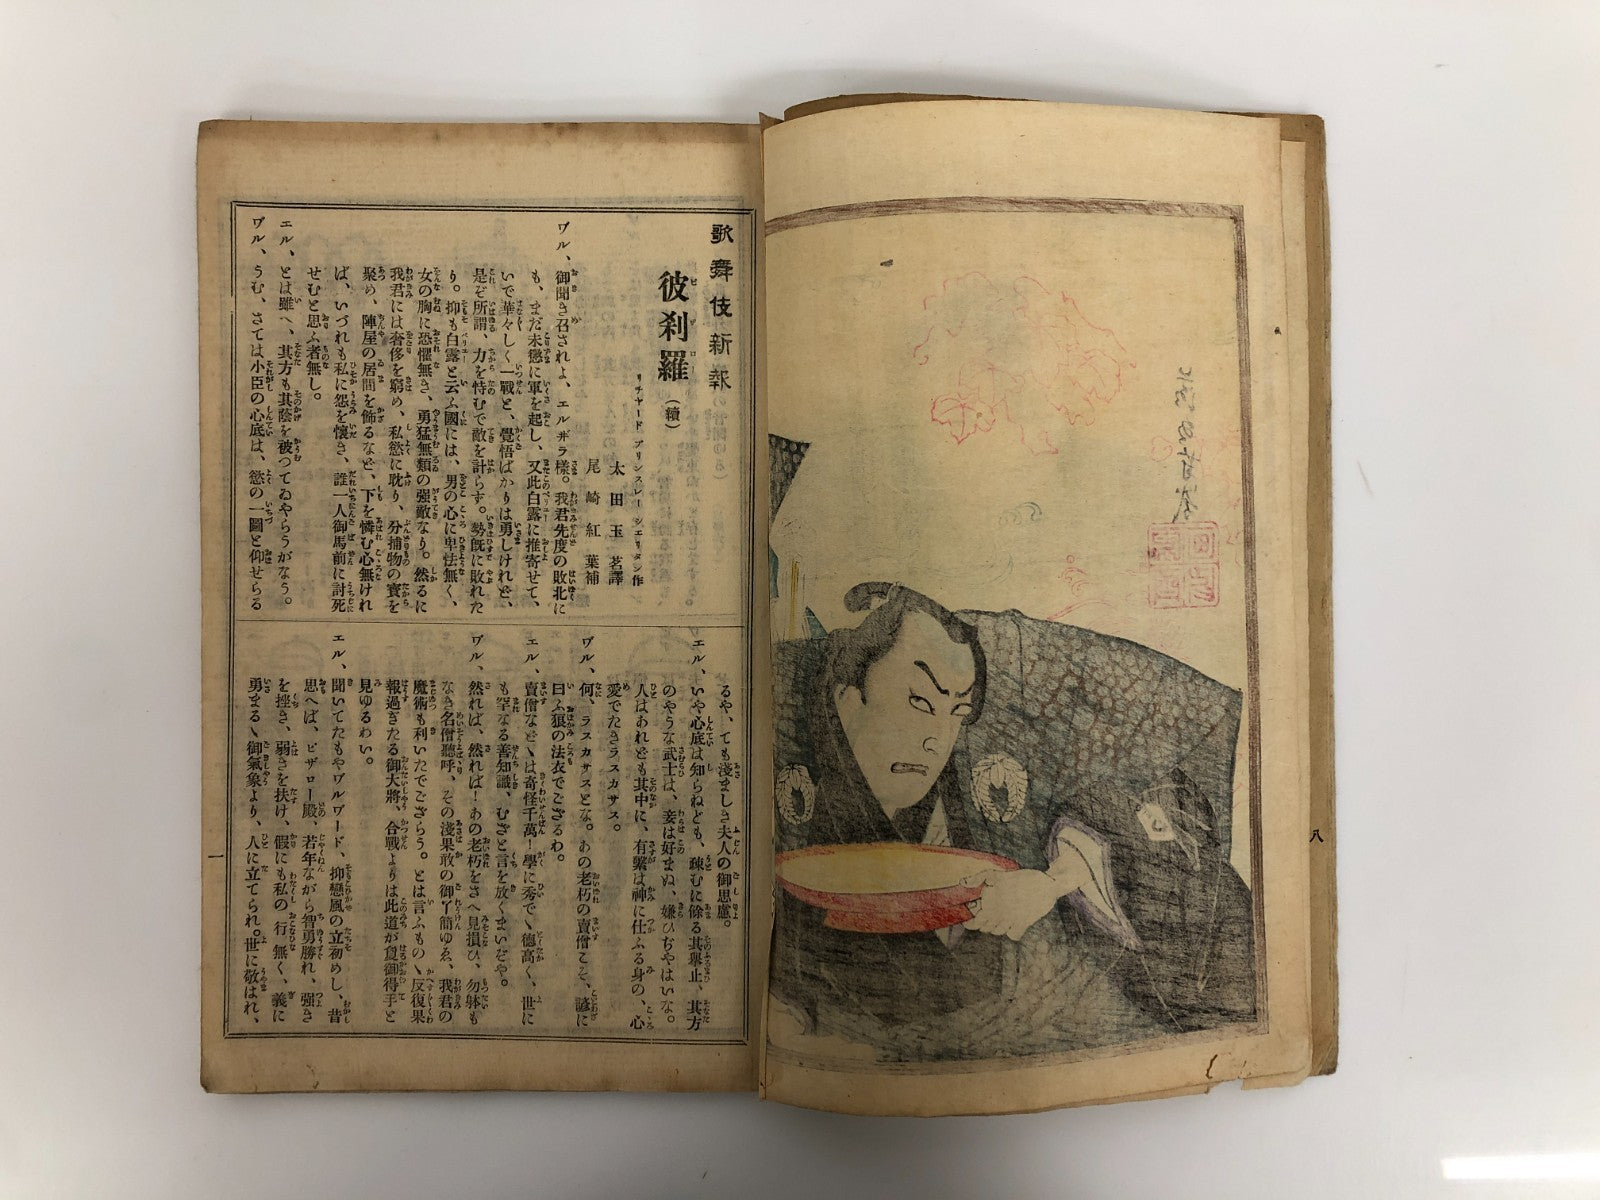 八
歌舞伎新報
彼刹羅(續)
ピザロー
リチヤード ブリンスレー シエリダン作
太田玉茗譯
尾崎紅葉補
ワル、御聞き召されよ、エルザラ樣。我君先度の敗北に
も、まだ未懲に軍を起し、又此白露に推寄せて、
いで華々しく一戰と、覺悟ばかりは勇しけれど、
是ぞ所謂、力を恃むで敵を計らず。勢既に敗れた
り。抑も白露と云ふ國には、男の心に卑怯無く、
女の胸に恐懼無き、勇猛無類の强敵なり。然るに
我君には奢侈を窮め、私慾に耽り、分捕物の寳を
聚め、陣屋の居間を飾るなど、下を憐む心無けれ
ば、いづれも私に怨を懷き、誰一人御馬前に討死
せむと思ふ者無し。
エル、とは雖へ、其方も其蔭を被つてゐやらうがなう。
ワル、うむ、さては小臣の心底は、慾の一圖と仰せらる
るや、ても淺ましき夫人の御思慮。
エル、いや心底は知らねども、疎むに餘る其擧止、其方
のやうな武士は、妾は好まぬ、嫌ひぢやはいな。
人はあれども其中に、有繫は神に仕ふる身の、心
愛でたきラスカサス。
ワル、何、ラスカサスとな。あの老朽の賣僧こそ、諺に
曰ふ狼の法衣でござるわ。
エル、賣僧などゝは奇怪千萬！學に秀でゝ德高く、世に
も罕なる善知識、むざと言を放くまいぞや。
ワル、然れば、然れば！あの老朽をさへ見損ひ、勿躰も
なき名僧聽呼、その淺果敢の御了簡ゆゑ、我君の
魔術も利いたでござらう。とは言ふものゝ反復果
報過ぎたる御大將、合戰よりは此道が夐御得手と
見ゆるわい。
エル、聞いてたもやワルワード、抑戀風の立初めし、昔
思へば、ピザロー殿、若年ながら智勇勝れ、强き
を挫き、弱きを扶け、假にも私の行無く、義に
勇まるゝ御氣象より、人に立てられ。世に敬はれ、
一